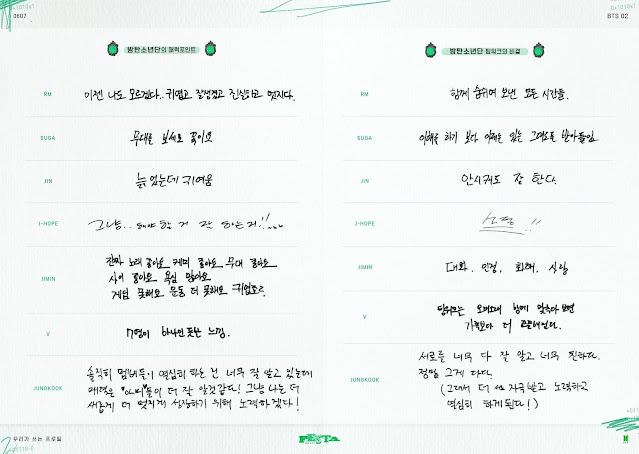 0607
BTS 02
방탄소년단의 매력포인트
RM
이젠 나도 모르겠다.. 귀엽고 잘생겼고 진실하고 멋지다.
SUGA
무대를 보세요 좋아요
JIN
늙었는데 귀여움
J-HOPE
그냥.. 해야 할 거 잘 하는거!!
JIMIN
진짜 노래 좋아요 케미 좋아요 무대 좋아요
사이 좋아요 욕심 많아요
게임 못해요 운동 더 못해요 귀엽고.
V
7명이 하나인듯한 느낌.
JUNGKOOK
솔직히 멤버들이 열심히 하는 건 너무 잘 알고 있는데
매력은 '아미'들이 더 잘 알것같다! 그냥 나는 더
새롭게 더 멋지게 성장하기 위해 노력하겠다!
방탄소년단 팀워크의 비결
RM
함께 숨쉬며 보낸 모든 시간들.
SUGA
이해를 하기 보다 이해를 있는 그대로를 받아들임
JIN
안시켜도 잘 한다.
J-HOPE
소통!!
JIMIN
대화, 인정, 화해, 식사
V
팀워크는 오래오래 함께 맞추다 보면
가족보다 더 끈끈해진다.
JUNGKOOK
서로를 너무 다 잘 알고 너무 편하다.
정말 그게 다다.
(그래서 더 자극받고 노력하고
열심히 하게된다!)
우리가 쓰는 프로필
FESTA